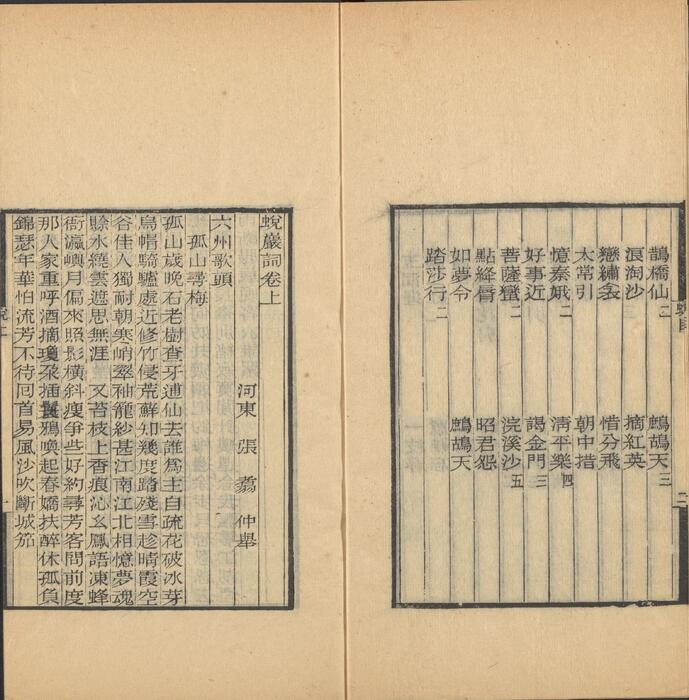 鵲橋仙二　鷓鴣天三
浪淘沙　摘紅英
戀繡衾　惜分飛
太常引　朝中措
憶秦娥二　清平樂四
好事近　謁金門三
菩薩蠻二　浣溪沙五
點絳脣　昭君怨
如夢令　鷓鴣天
踏莎行二
蛻巖詞卷上
河東　張翥　仲舉
六州歌頭
孤山尋梅
孤山歲晚石老樹查牙逋仙去誰為主自疏花破冰芽
烏帽騎驢處近修竹侵荒蘚知幾度踏殘雪趁晴霞空
谷佳人獨耐朝寒峭翠袖籠紗甚江南江北相憶夢魂
賒水繞雲遮思無涯　又苔枝上香痕沁幺鳳語凍蜂
衙瀛嶼月偏來照影橫斜瘦爭些好約尋芳客問前度
那人家重呼酒摘瓊朵插鬟鴉喚起春嬌扶醉休孤負
錦瑟年華怕流芳不待回首易風沙吹斷城笳